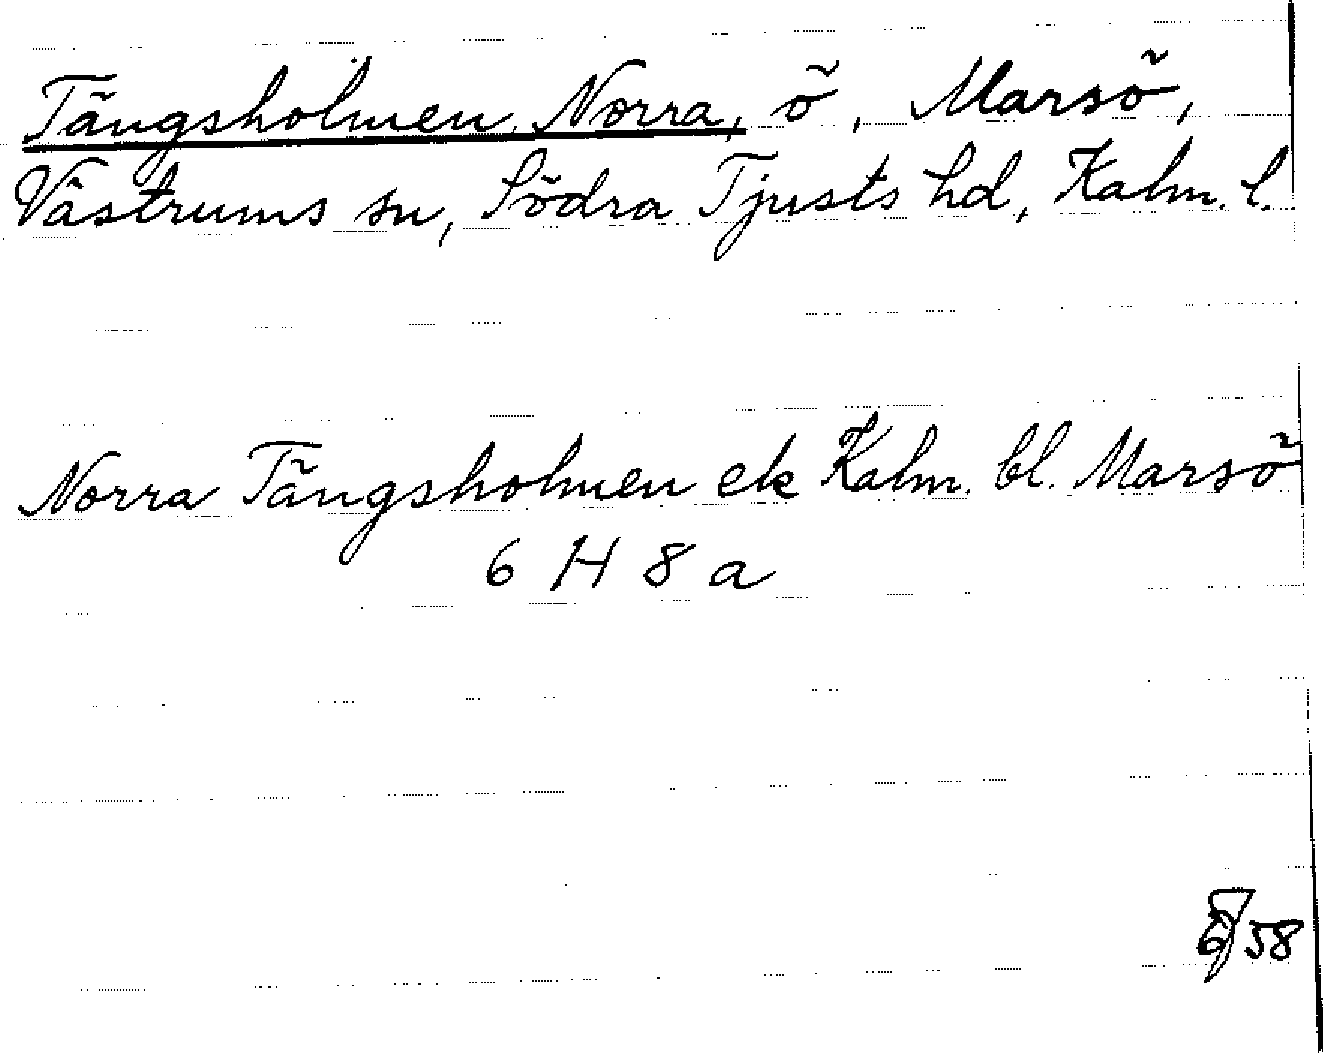 Tängsholmen, Norra, ö, Marsö,
Västrums sn, Södra Tjusts hd, Kalm. l.
Norra Tängsholmen ek Kalm. bl. Marsö
6 H 8 a
58